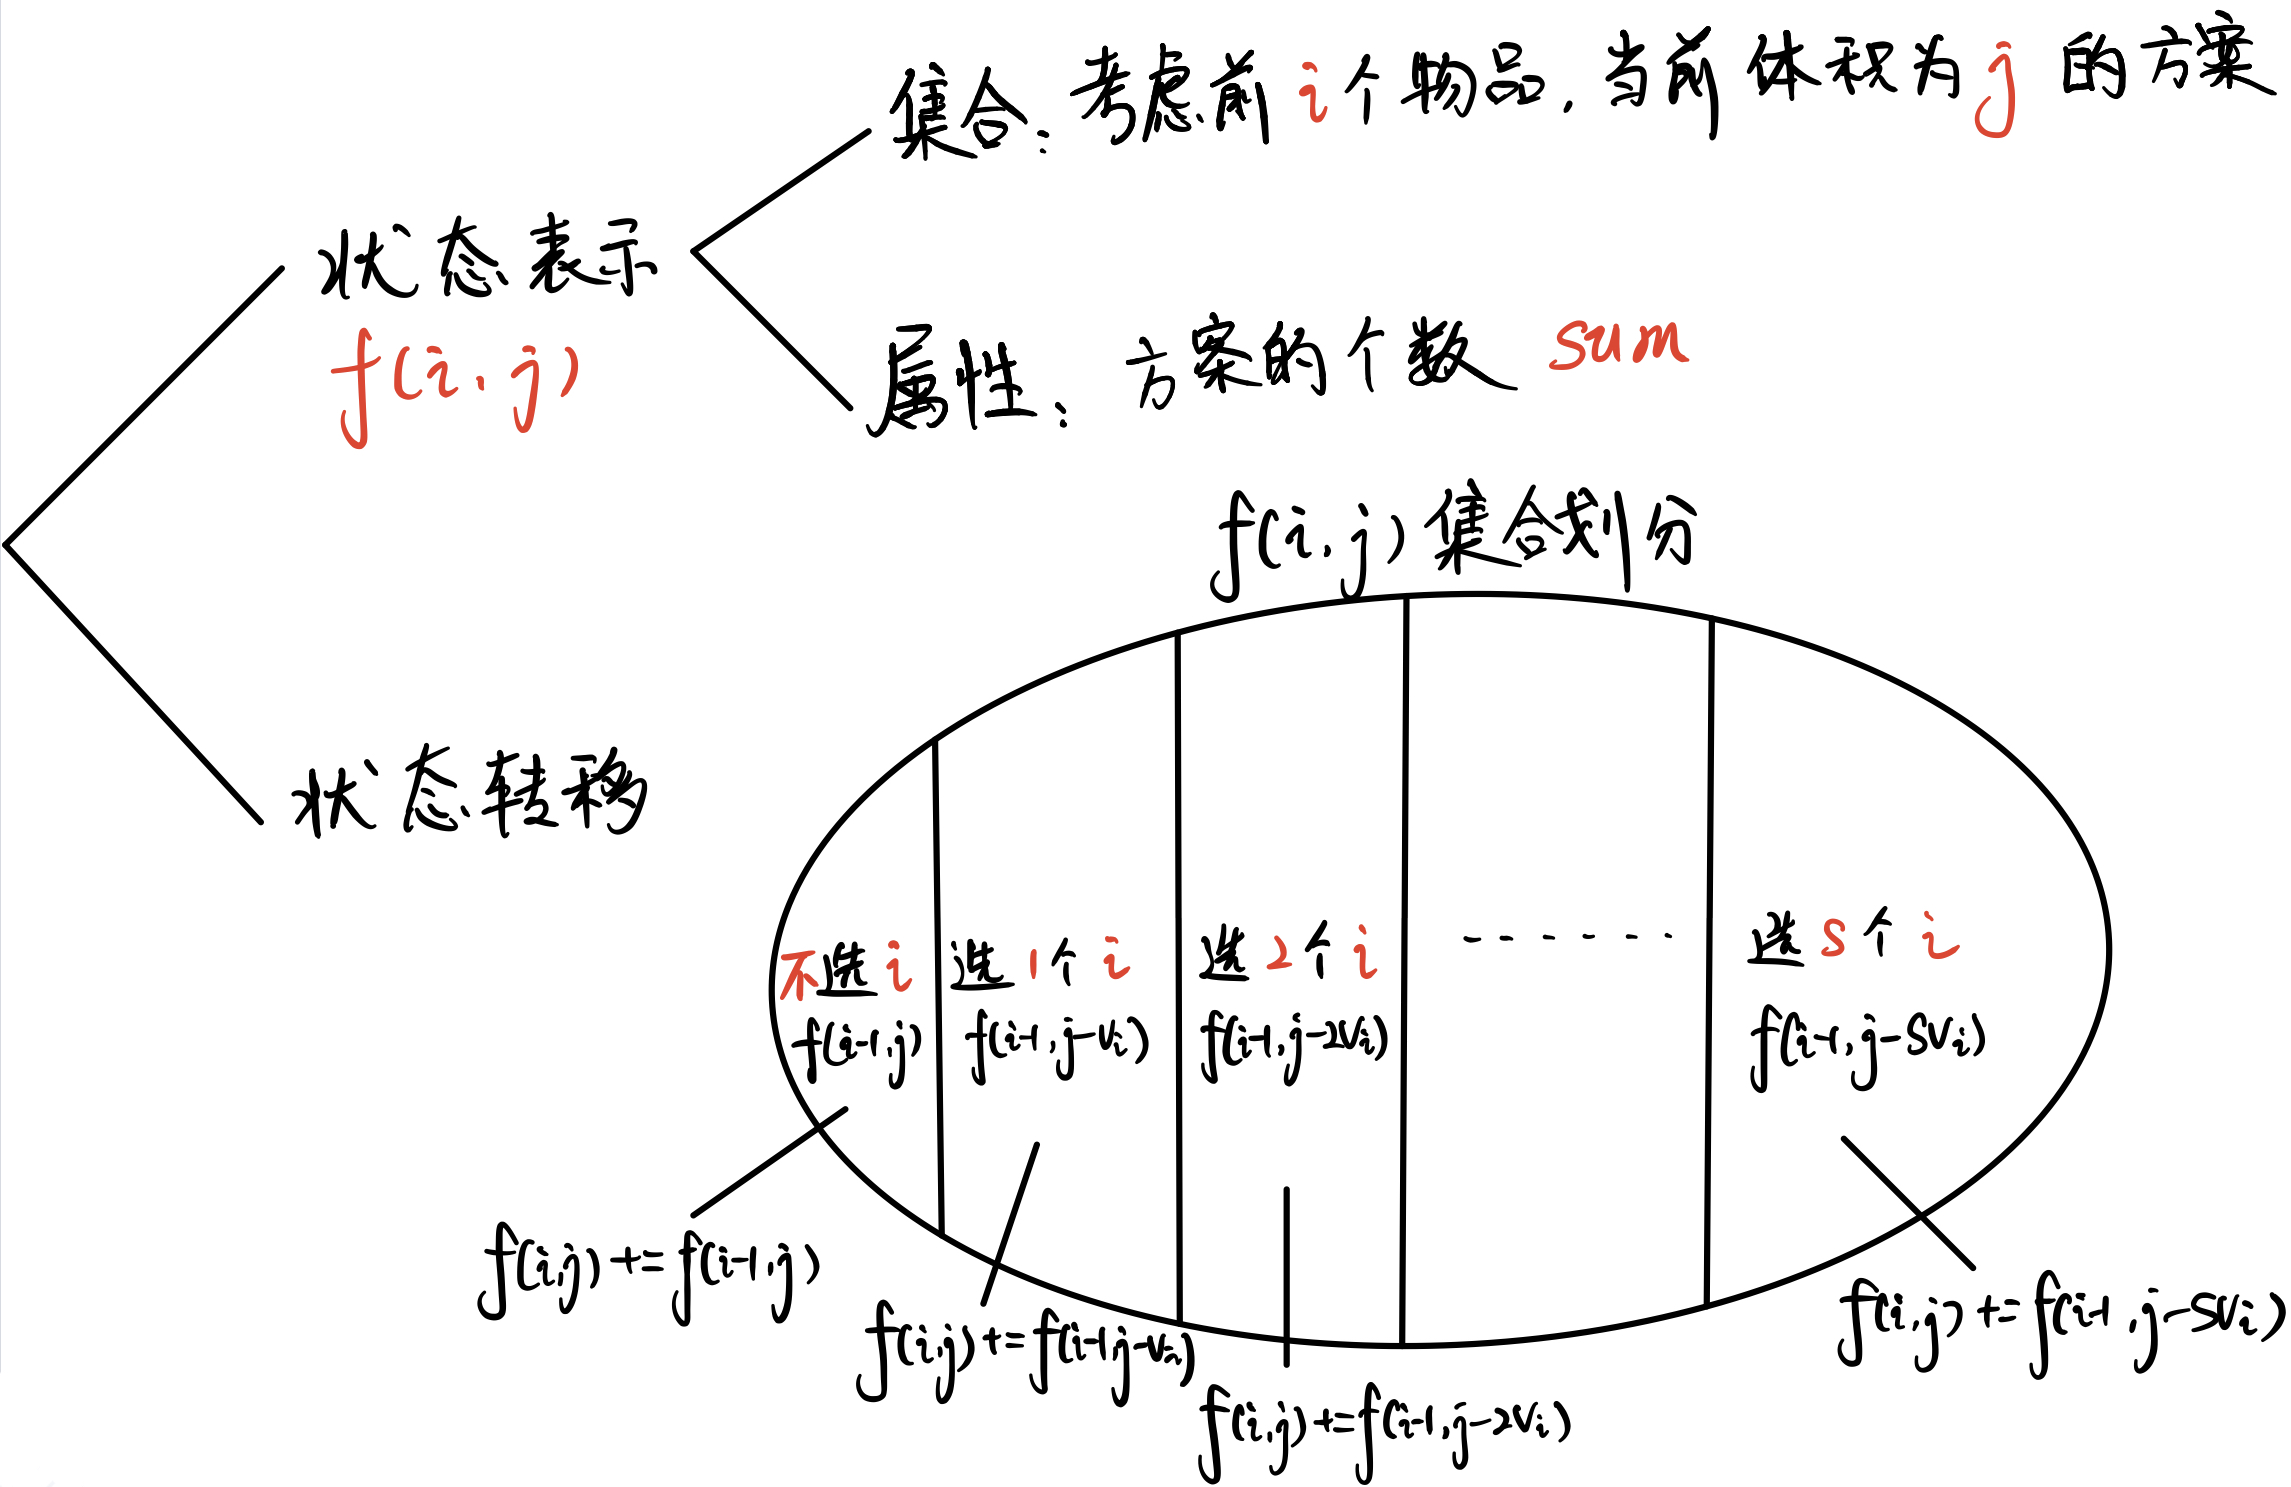 集合：考虑前i个物品，当前体积为j的方案
状态表示
f(i,j)
属性：方案的个数 sum
f(i,j)集合划分
状态转移
不选i
f(i-1,j)
选1个i
f(i-1,j-Vi)
选2个i
f(i-1,j-2Vi)
------
选S个i
f(i-1,j-SVi)
f(i,j)+=f(i-1,j)
f(i,j)+=f(i-1,j-Vi)
f(i,j)+=f(i-1,j-2Vi)
f(i,j)+=f(i-1,j-SVi)